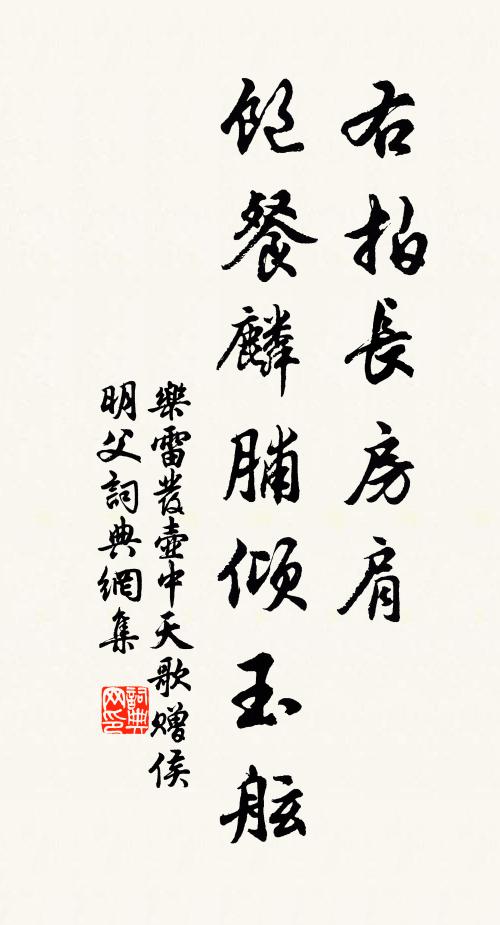 右拍長房肩
飽餐麟脯傾玉舷
樂雷發壺中天歌贈侯
明父詞典網集
詞典网印